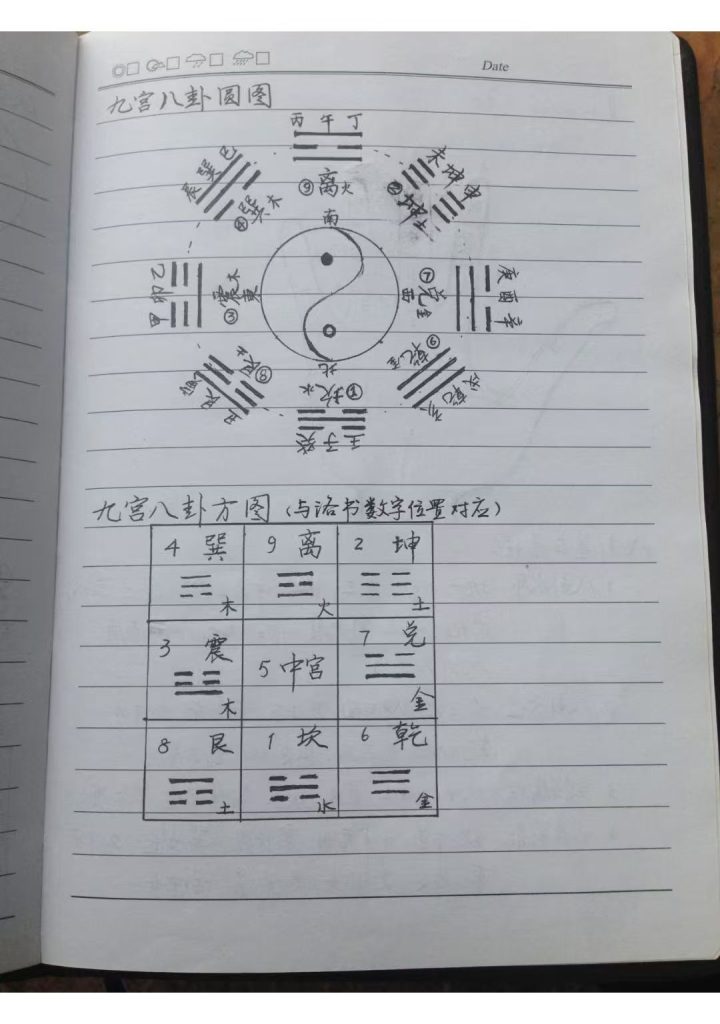 Date
九宫八卦圆图
丙 午 丁
⑨离火
南
未坤申
②坤土
庚酉辛
⑦兑金
西
戌乾
⑥乾金
北
①坎水
壬子癸
⑧艮土
甲卯乙
③震木
東
辰巽巳
④巽木
九宫八卦方图(与洛书数字位置对应)
4 巽 木
9 离 火
2 坤 土
3 震 木
5 中宫
7 兑 金
8 艮 土
1 坎 水
6 乾 金